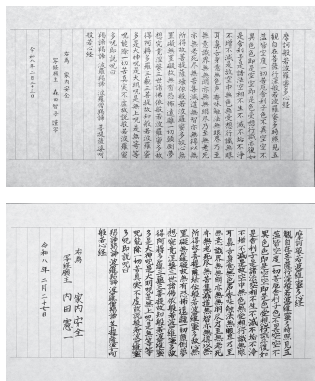 摩訶般若波羅蜜多心経
観自在菩薩行深般若波羅蜜多時照見五
蘊皆空度一切苦厄舎利子色不異空空不
異色色即是空空即是色受想行識亦復如
是舎利子是諸法空相不生不滅不垢不浄
不増不減是故空中無色無受想行識無眼
耳鼻舌身意無色声香味触法無眼界乃至
無意識界無無明亦無無明尽乃至無老死
亦無老死尽無苦集滅道無智亦無得以無
所得故菩提薩埵依般若波羅蜜多故心無
罣礙無罣礙故無有恐怖遠離一切顛倒夢
想究竟涅槃三世諸仏依般若波羅蜜多故
得阿耨多羅三藐三菩提故知般若波羅蜜
多是大神呪是大明呪是無上呪是無等等
呪能除一切苦真実不虚故説般若波羅蜜
多呪即説呪曰
羯諦羯諦波羅羯諦波羅僧羯諦菩提薩婆訶
般若心経
右為 家内安全
写経願主
令和八年二月二十二日
摩訶般若波羅蜜多心経
観自在菩薩行深般若波羅蜜多時照見五
蘊皆空度一切苦厄舎利子色不異空空不
異色色即是空空即是色受想行識亦復如
是舎利子是諸法空相不生不滅不垢不浄
不増不減是故空中無色無受想行識無眼
耳鼻舌身意無色声香味触法無眼界乃至
無意識界無無明亦無無明尽乃至無老死
亦無老死尽無苦集滅道無智亦無得以無
所得故菩提薩埵依般若波羅蜜多故心無
罣礙無罣礙故無有恐怖遠離一切顛倒夢
想究竟涅槃三世諸仏依般若波羅蜜多故
得阿耨多羅三藐三菩提故知般若波羅蜜
多是大神呪是大明呪是無上呪是無等等
呪能除一切苦真実不虚故説般若波羅蜜
多呪即説呪曰
羯諦羯諦波羅羯諦波羅僧羯諦菩提薩婆訶
般若心経
右為 家内安全
写経願主 内田憲一
令和八年二月二十二日